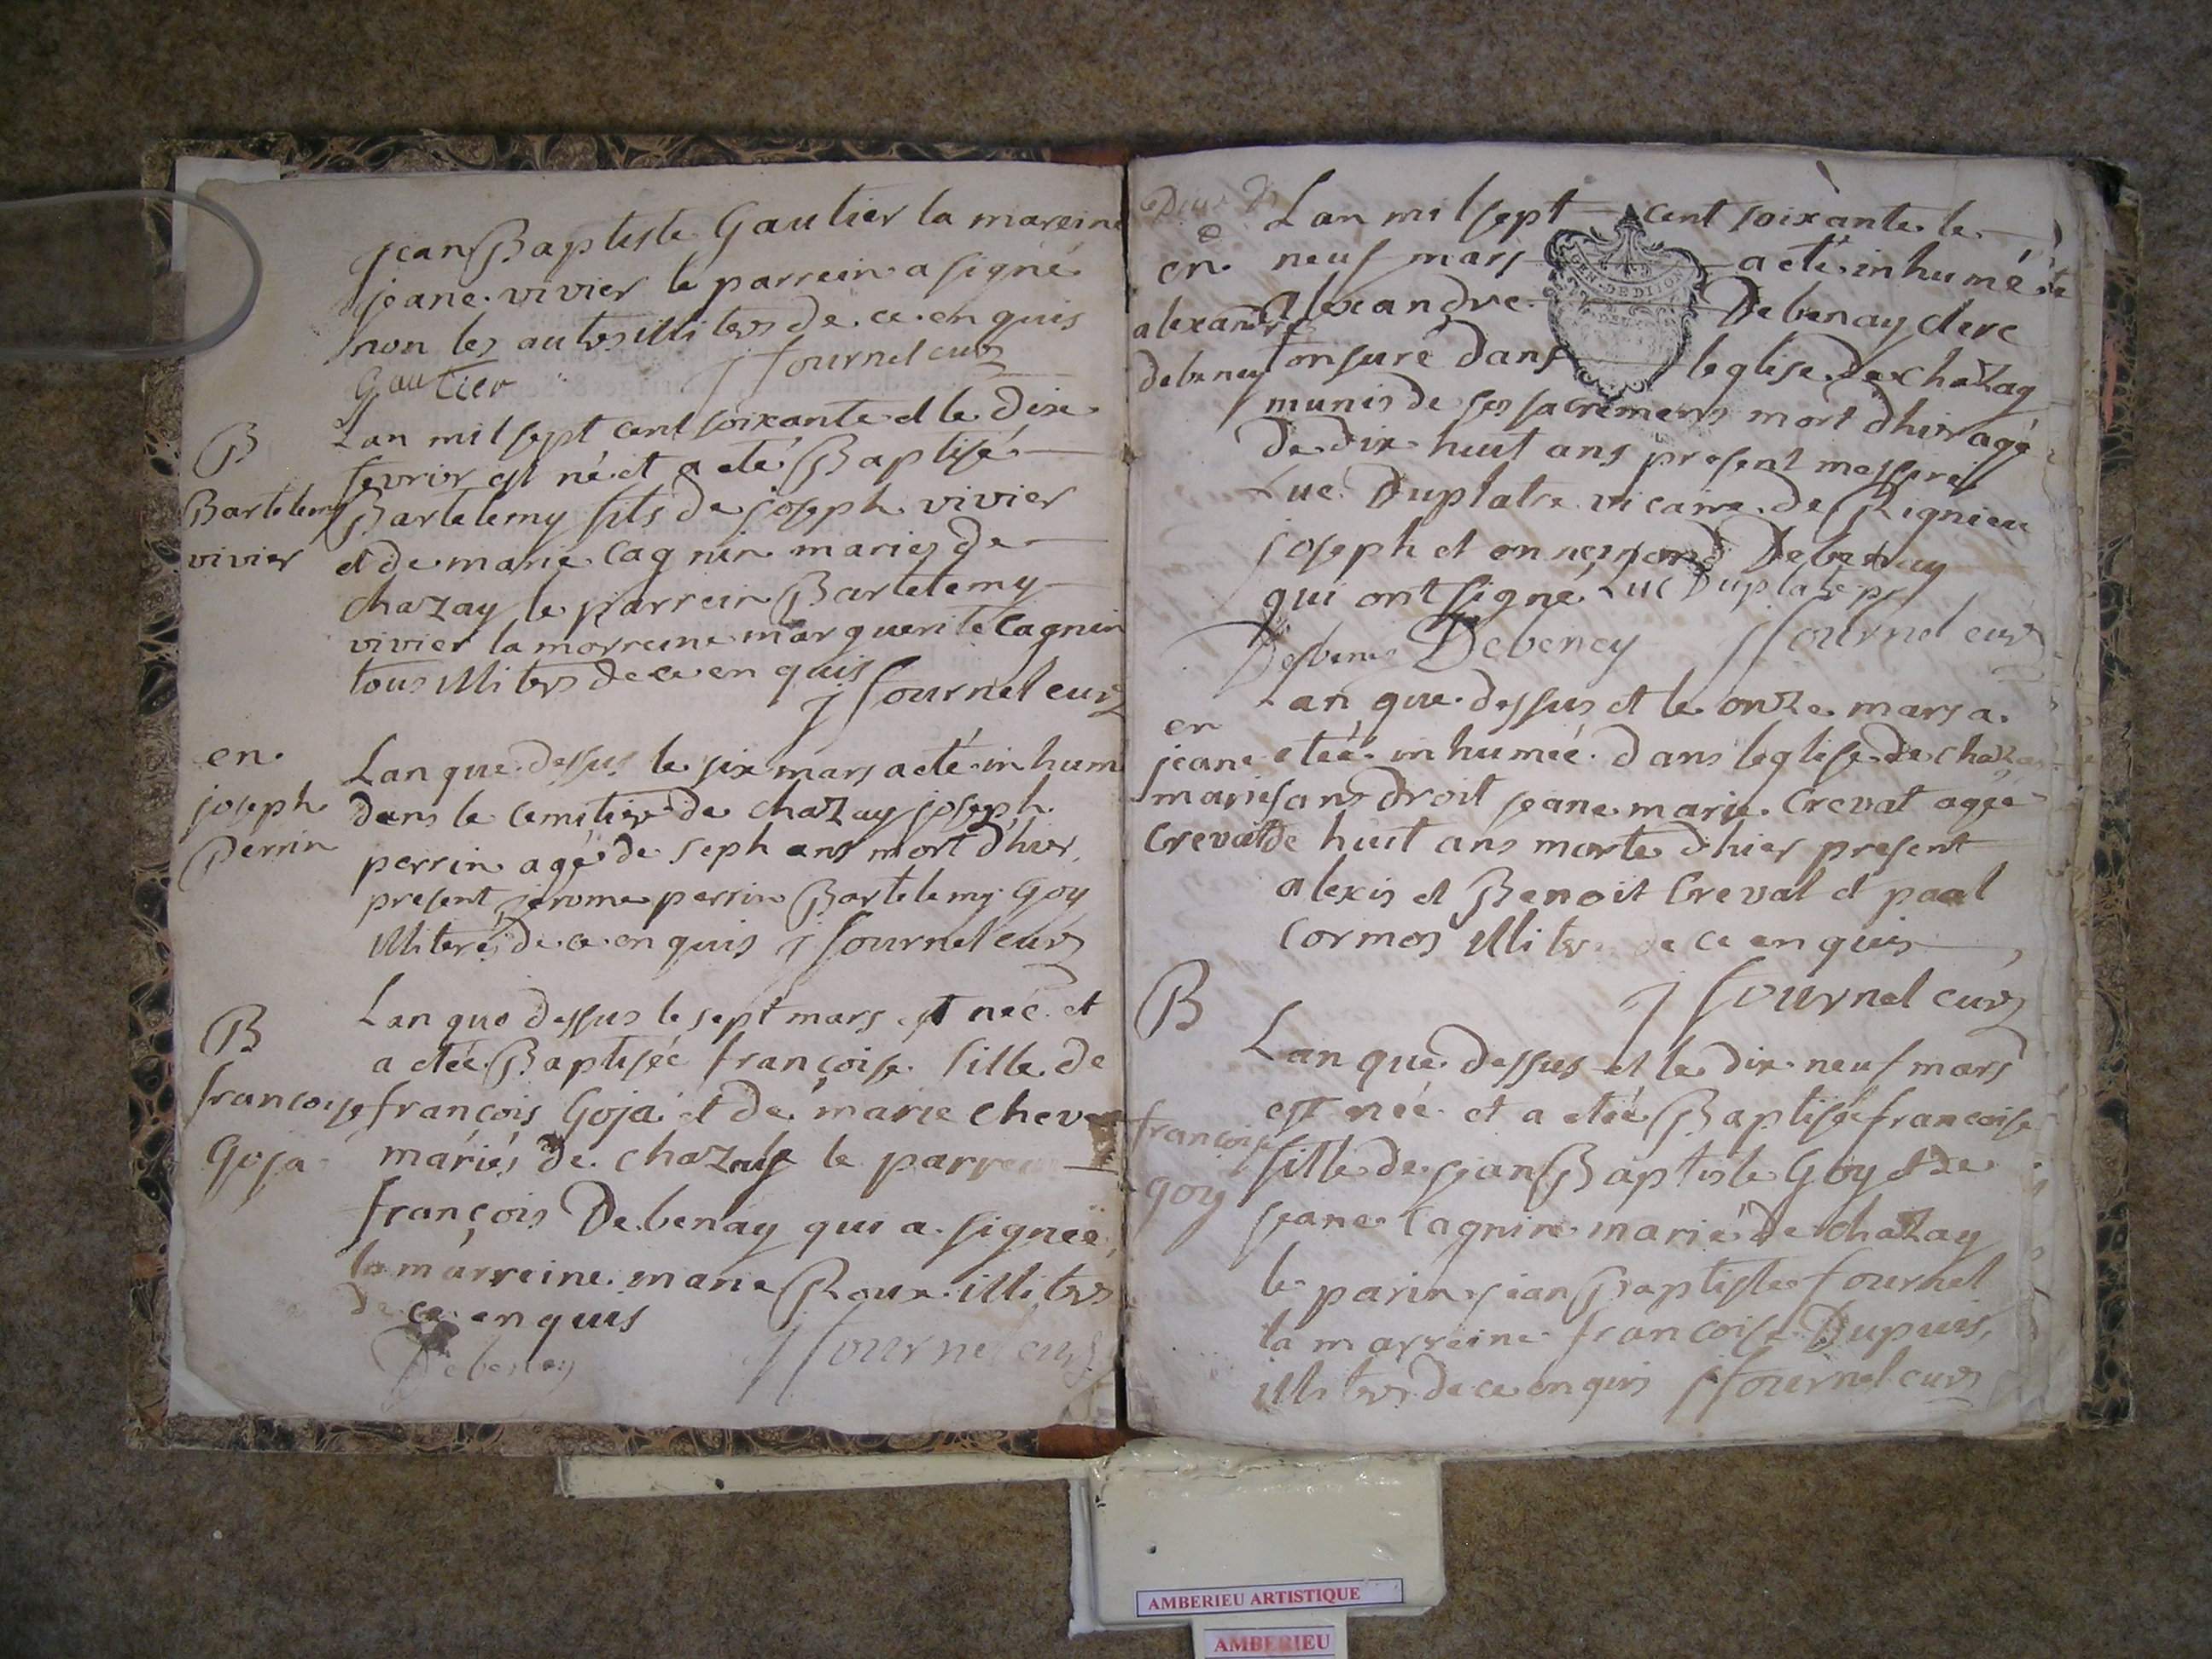 jean Baptiste Gautier la mareine
jeane vivier le parrein a signé
non les autres illiters de ce enquis
Gautier j fournel curé
B
Bartelemy
vivier
Lan mil sept cent soixante et le dixe
fevrier est né et a eté Baptisé
Bartelemy fils de joseph vivier
et de marie Cagnin mariés de
chazay le parrein Bartelemy
vivier la marreine marguerite Cagnin
tous illiters de ce enquis
j fournel curé
en
joseph
Perrin
Lan que dessus le six mars a eté inhum
dans le cemitiere de chazay joseph
perrin agé de seph ans mort d'hier
present jerome perrin Bartelemy Goy
illiterés de ce enquis j fournel curé
B
francoise
Goja
Lan que dessus le sept mars est née et
a etée Baptisée françoise fille de
françois Goja et de marie cheva
mariés de chazay le parrein
françois Debenay qui a signeé
la marreine marie Roux illiters
de ce enquis
Debeney j fournel curé
en
alexandre
debeney
Lan mil sept cent soixante le
neuf mars a eté inhumé
alexandre Debenay clerc
tonsuré dans leglise de chazay
GEN. DE DIJON
munis de ses sacremens mort dhier agé
de dix huit ans present messire
Luc Duplatre vicaire de Rignieu
joseph et Debenay
qui ont signé Luc Duplatre
Debeney j fournel curé
en
jeane
marie
Crevat
Lan que dessus et le onze mars a
eteé inhumée dans leglise de chazay
sans droit jeane marie Crevat agée
de huit ans morte d'hier present
alexis et Benoit Crevat et paul
Cormos illiters de ce enquis
j fournel curé
B
francoise
goy
Lan que dessus et le dix neuf mars
est née et a eteé Baptisée francoise
fille de jean Baptiste Goy et de
jeane Cagnin marié de chazay
le parin jean Baptiste fournel
la marreine francoise Dupuis
illiters de ce enquis j fournel curé
AMBERIEU ARTISTIQUE
AMBERIEU